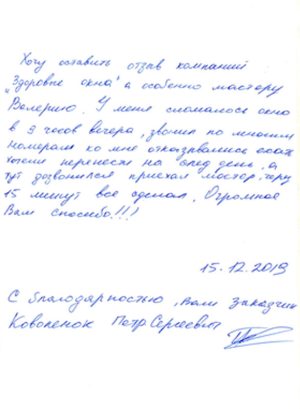 Хочу оставить отзыв компании
"Здоровые окна" а особенно мастеру
Валерию. У меня сломалось окно
в 9 часов вечера, звонил по многим
номерам ко мне отказывались ехать
хотели перенести на след день, а
тут дозвонился приехал мастер, через
15 минут все сделал. Огромное
Вам спасибо!!!
15.12.2019
С благодарностью, Вам Заказчик
Коваленок Петр Сергеевич